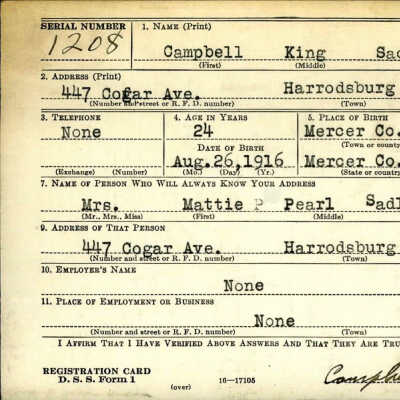 SERIAL NUMBER 1. NAME (Print)
1208 Campbell King
(First) (Middle)
2. ADDRESS (Print)
447 Cogar Ave. Harrodsburg
(Number and street or R. F. D. number) (Town)
3. TELEPHONE 4. AGE IN YEARS 5. PLACE OF BIRTH
None 24 Mercer Co.
DATE OF BIRTH (Town or county
Aug.26,1916 Mercer Co.
(Exchange) (Number) (Mo.) (Day) (Yr.) (State or country
7. NAME OF PERSON WHO WILL ALWAYS KNOW YOUR ADDRESS
Mrs. Mattie P Pearl Sadl
(Mr., Mrs., Miss) (First) (Middle)
9. ADDRESS OF THAT PERSON
447 Cogar Ave. Harrodsburg
(Number and street or R. F. D. number) (Town)
10. EMPLOYER'S NAME
None
11. PLACE OF EMPLOYMENT OR BUSINESS
None
(Number and street or R. F. D. number) (Town)
I AFFIRM THAT I HAVE VERIFIED ABOVE ANSWERS AND THAT THEY ARE TRU
REGISTRATION CARD
D. S. S. Form 1 16—17105
(over)